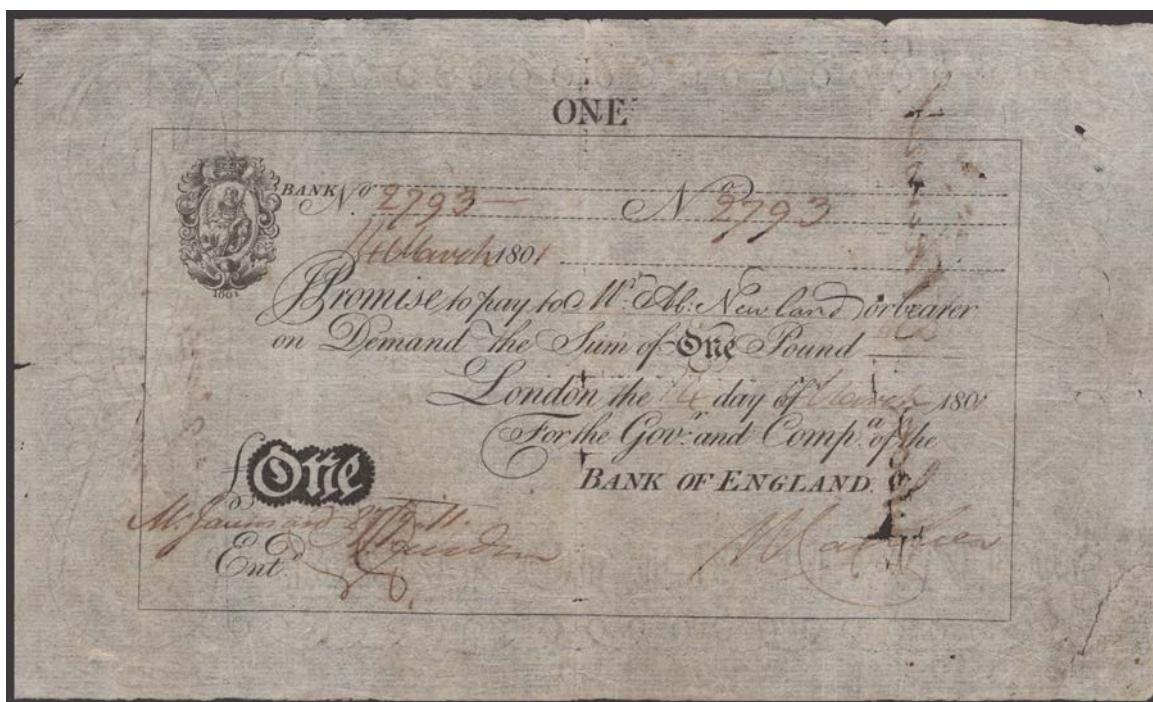 ONE
BANK No 2793 — No 2793
14 March 1801
1801
I Promise to pay to Mr. Ab: Newland or bearer
on Demand the Sum of One Pound
London the 14 day of March 1801
For the Govr. and Compa. of the
BANK OF ENGLAND.
£ One
Entd.